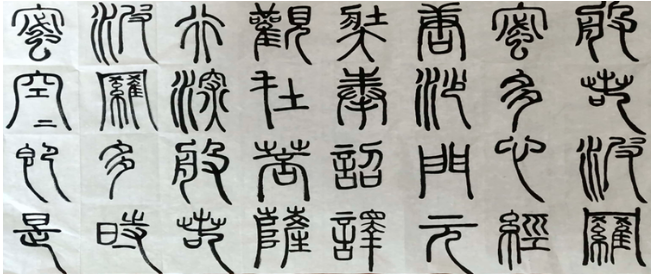 般若波羅
蜜多心經
唐沙門元
奘奉詔譯
觀在菩薩
行深般若
波羅多時
蜜空二即是